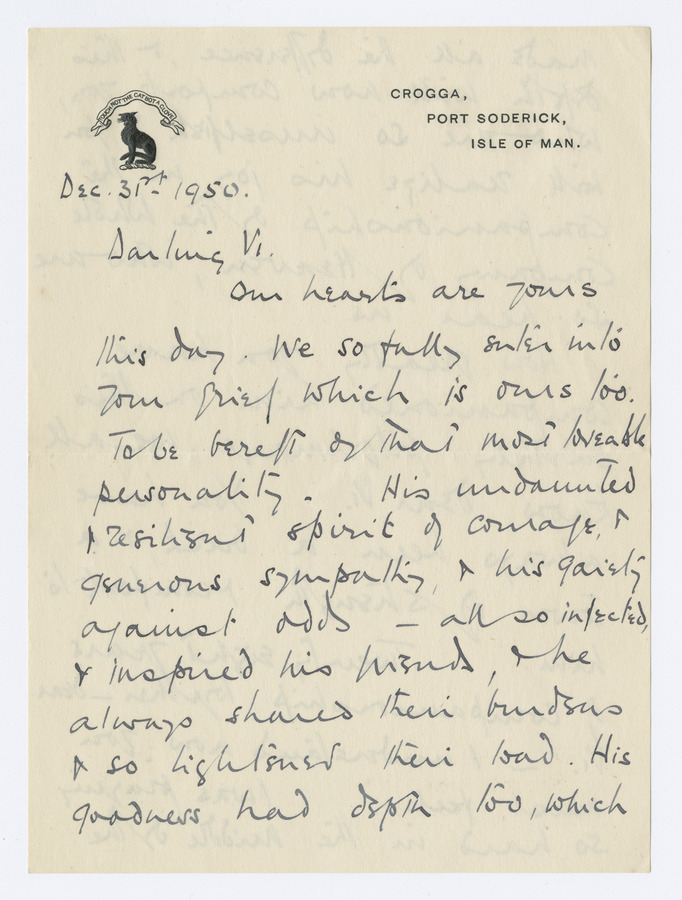 TOUCH NOT THE CAT BOT A GLOVE
CROGGA,
PORT SODERICK,
ISLE OF MAN.
Dec. 31st 1950.
Darling Vi.
Our hearts are yours
this day. We so fully enter into
your grief which is ours too.
To be bereft of that most loveable
personality. His undaunted
& resilient spirit of courage, &
generous sympathy, & his gaiety
against odds – all so infected,
& inspired his friends, & he
always shared their burdens
& so lightened their load. His
goodness had depth too, which